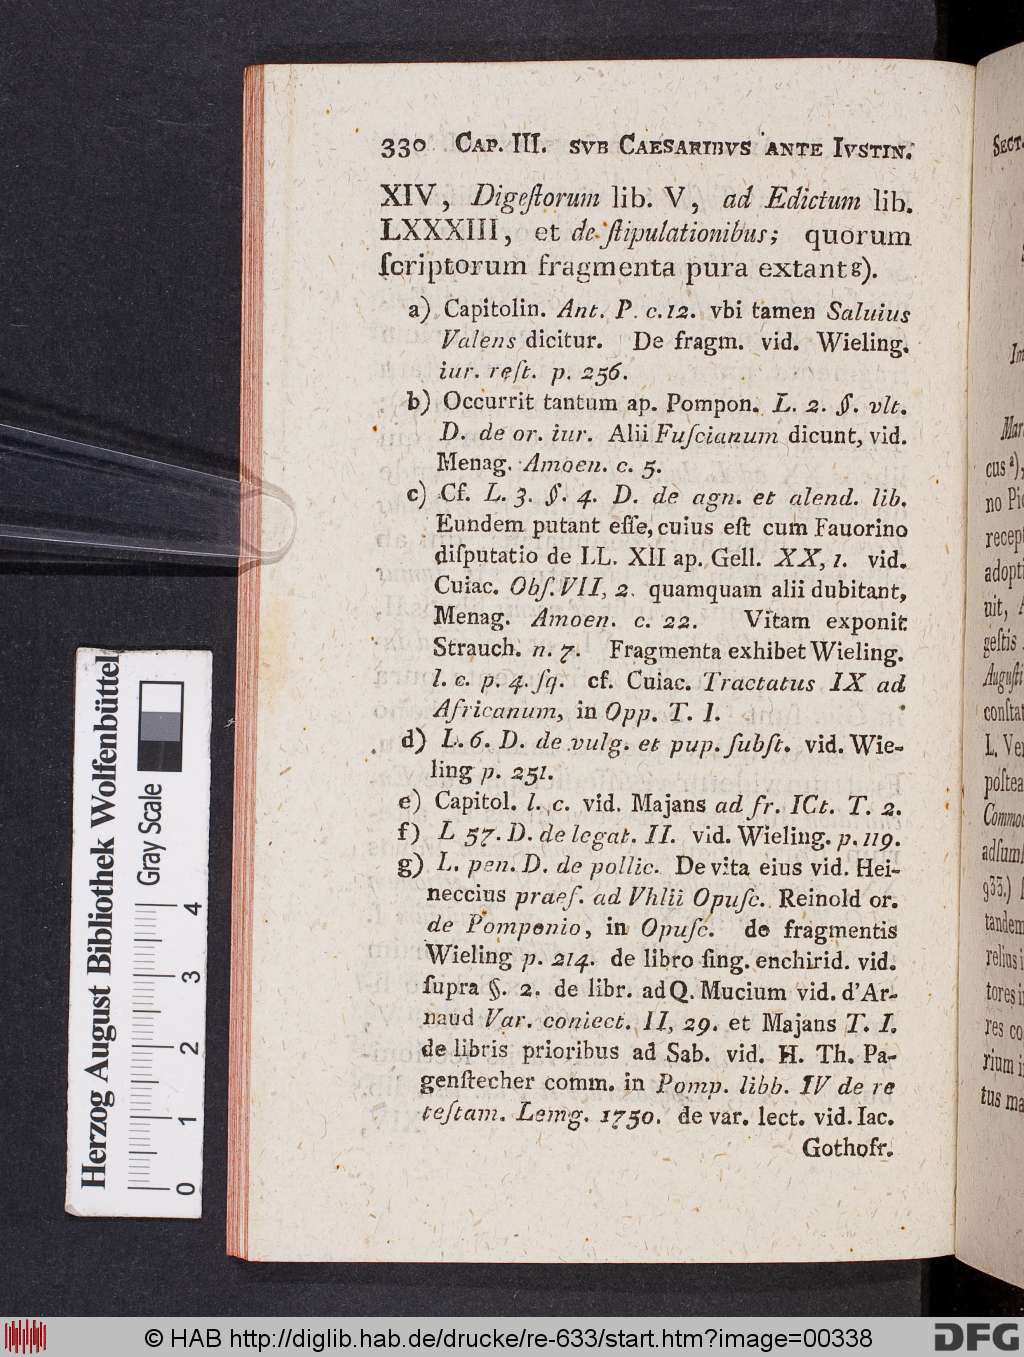 330 CAP. III. SVB CAESARIBVS ANTE IVSTIN.
XIV, Digeſtorum lib. V, ad Edictum lib.
LXXXIII, et de ſtipulationibus; quorum
ſcriptorum fragmenta pura extant g).
a) Capitolin. Ant. P. c. 12. vbi tamen Saluius
Valens dicitur. De fragm. vid. Wieling.
iur. reſt. p. 256.
b) Occurrit tantum ap. Pompon. L. 2. §. vlt.
D. de or. iur. Alii Fuſcianum dicunt, vid.
Menag. Amoen. c. 5.
c) Cf. L. 3. §. 4. D. de agn. et alend. lib.
Eundem putant eſſe, cuius eſt cum Fauorino
diſputatio de LL. XII ap. Gell. XX, 1. vid.
Cuiac. Obſ. VII, 2. quamquam alii dubitant,
Menag. Amoen. c. 22. Vitam exponit
Strauch. n. 7. Fragmenta exhibet Wieling.
l. c. p. 4. ſq. cf. Cuiac. Tractatus IX ad
Africanum, in Opp. T. I.
d) L. 6. D. de vulg. et pup. ſubſt. vid. Wie-
ling p. 251.
e) Capitol. l. c. vid. Majans ad fr. ICt. T. 2.
f) L 57. D. de legat. II. vid. Wieling. p. 119.
g) L. pen. D. de pollic. De vita eius vid. Hei-
neccius praef. ad Vhlii Opuſc. Reinold or.
de Pomponio, in Opuſc. de fragmentis
Wieling p. 214. de libro ſing. enchirid. vid.
ſupra §. 2. de libr. ad Q. Mucium vid. d'Ar-
naud Var. coniect. II, 29. et Majans T. I.
de libris prioribus ad Sab. vid. H. Th. Pa-
genſtecher comm. in Pomp. libb. IV de re
teſtam. Lemg. 1750. de var. lect. vid. Iac.
Gothofr.
SECT.
Mar
cus a),
no Pi
recept
adopti
uit, A
geſtis
Auguſti
conſtat
L. Ver
poſtea
Commo
adſum
933.)
tandem
relius i
tores i
res co
rium i
tus ma
Herzog August Bibliothek Wolfenbüttel
Gray Scale
0 1 2 3 4
© HAB http://diglib.hab.de/drucke/re-633/start.htm?image=00338
DFG